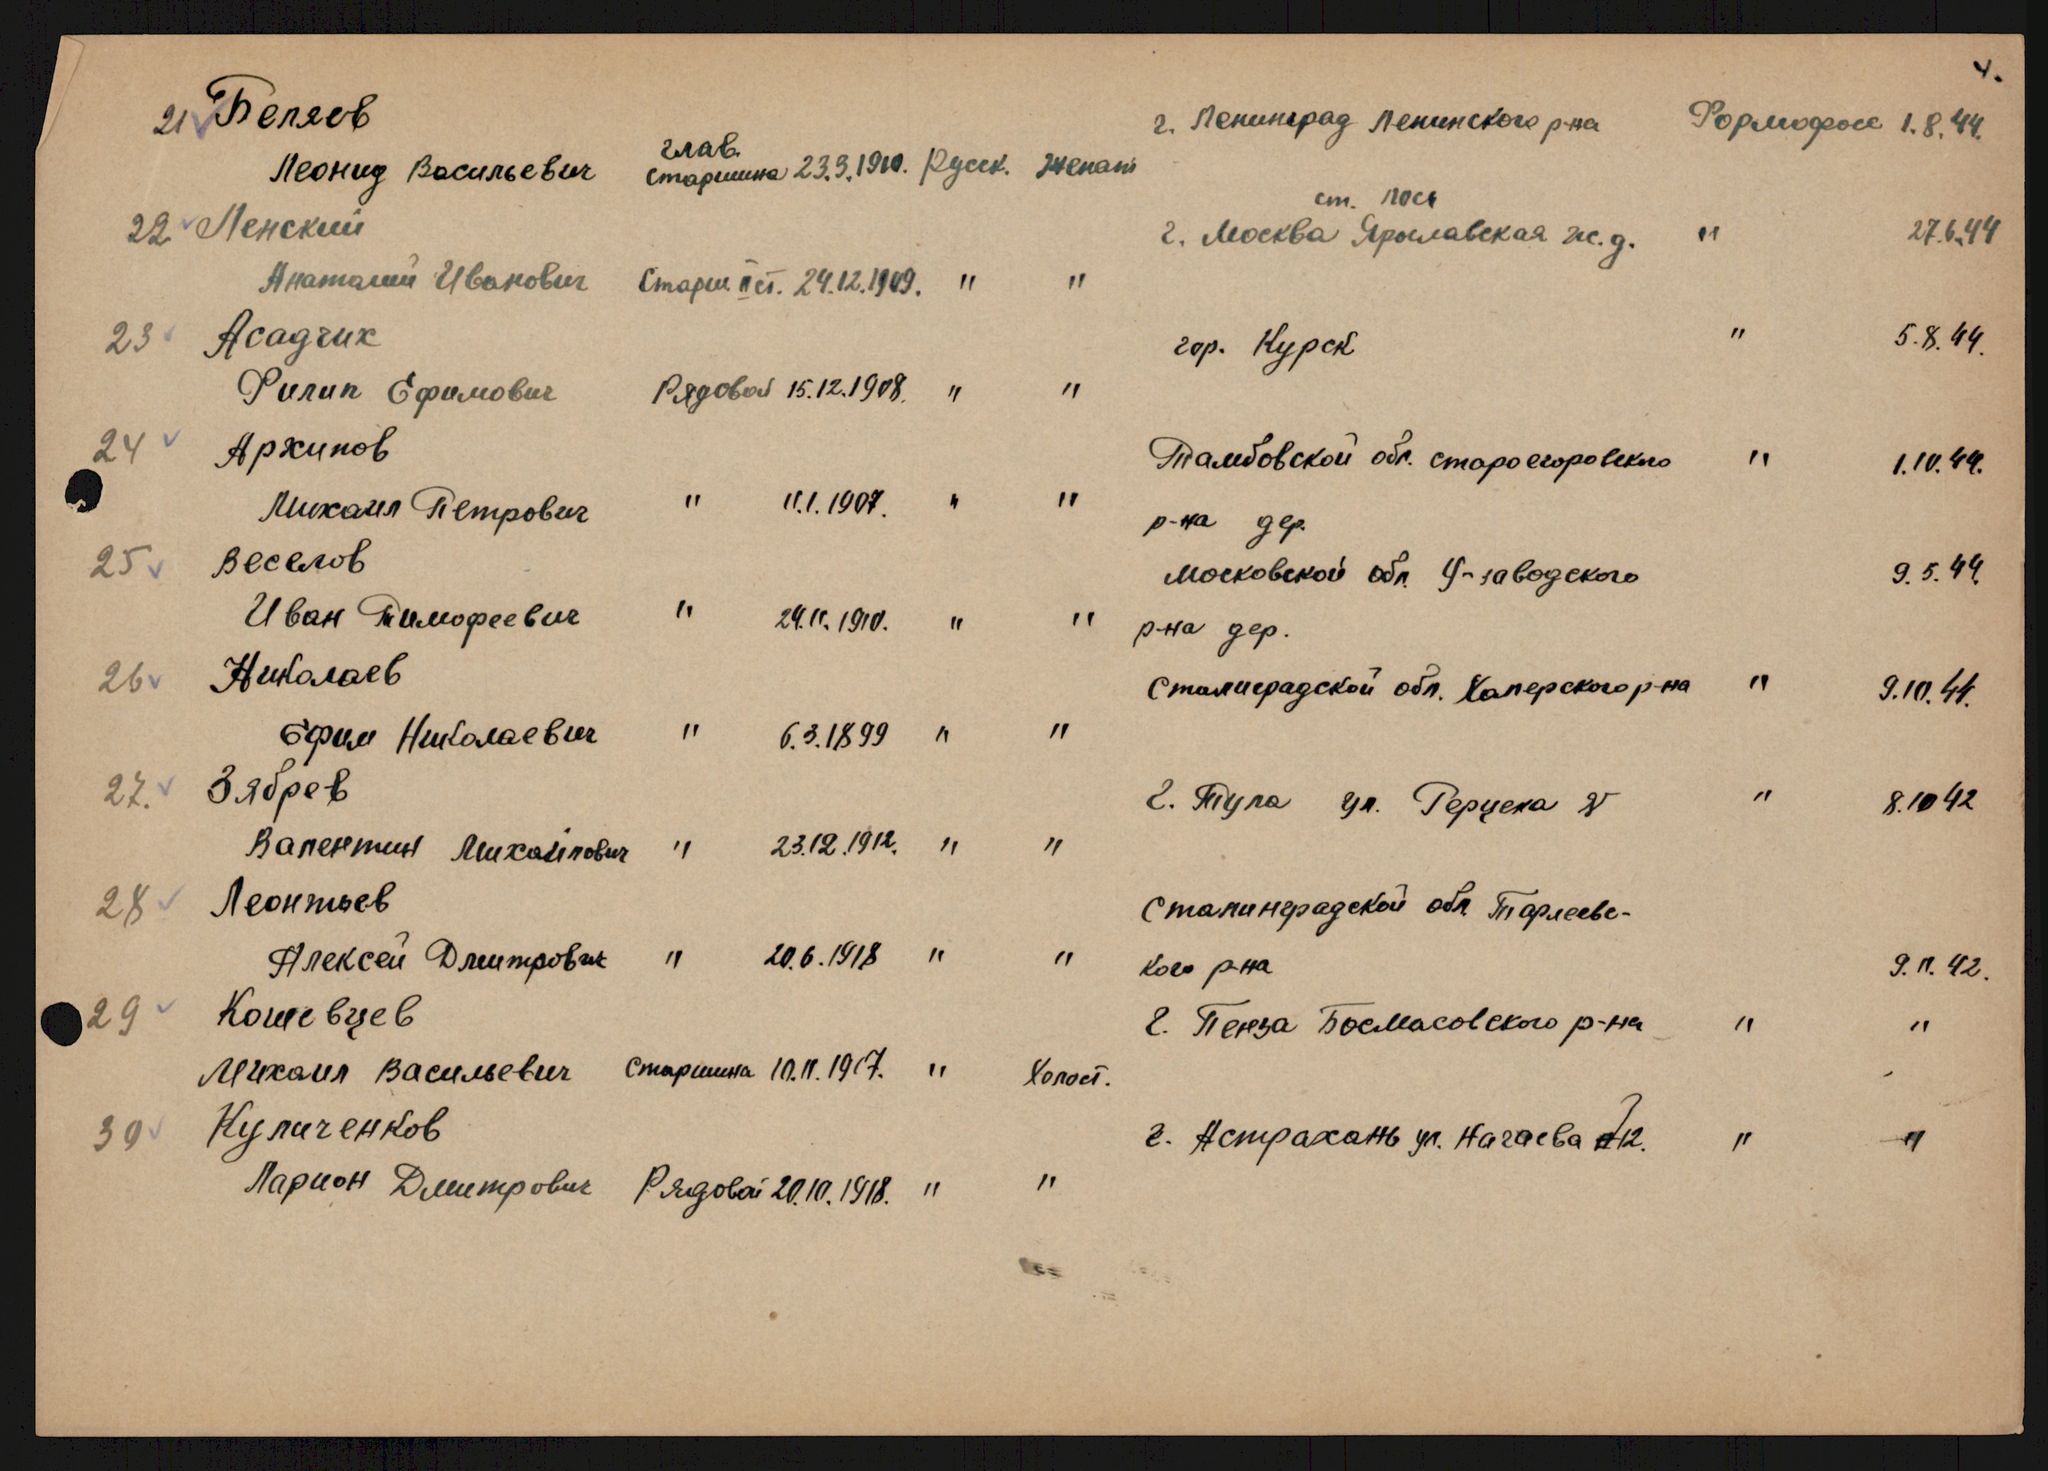 4.
21 Беляев г. Ленинград Ленинского р-на 1.8.44.
Леонид Васильевич глав. старшина 23.3.1910. Русск. Женат
22 Ленский ст. Лось г. Москва Ярославская ж.д. " 27.6.44
Анаталий Иванович Старш. II ст. 24.12.1909. " "
23 Асадчих гор. Курск " 5.8.44.
Филип Ефимович Рядовой 15.12.1908. " "
24 Архипов Тамбовской обл. староегоровского " 1.10.44.
Михаил Петрович " 11.1.1907. " " р-на дер.
25 Веселов Московской обл. У-заводского 9.5.44.
Иван Тимофеевич " 24.11.1910. " " р-на дер.
26 Николаев Сталинградской обл. Хаперского р-на " 9.10.44.
Ефим Николаевич " 6.3.1899 " "
27. Зябрев г. Тула ул. Герцена " 8.10 42
Валентин Михайлович " 23.12.1912. " "
28 Леонтьев Сталинградской обл.
Алексей Дмитрович " 20.6.1918 " " кого р-на 9.11.42.
29 Кошевцев г. Пенза р-на " "
Михаил Васильевич Старшина 10.11.1917. " Холост.
30 Куличенков г. Астрахань ул. Начаева 12. " "
Ларион Дмитрович Рядовой 20.10.1918. " "